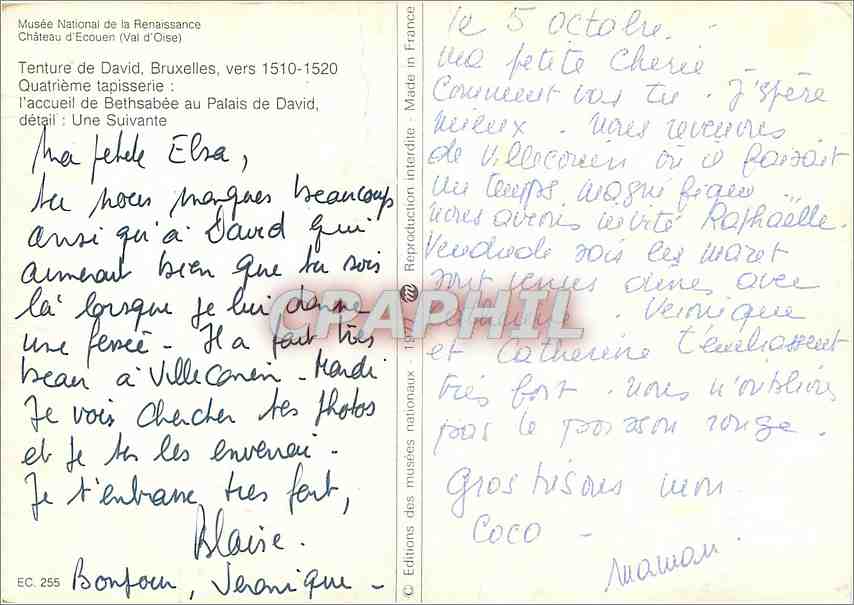 Musée National de la Renaissance
Château d'Ecouen (Val d'Oise)
Tenture de David, Bruxelles, vers 1510-1520
Quatrième tapisserie :
l'accueil de Bethsabée au Palais de David,
détail : Une Suivante
Ma petite Elsa,
tu nous manques beaucoup
ainsi qu'à David qui
aimerait bien que tu sois
là lorsque je lui donne
une fessée - Il a fait très
beau à Villeconin - Mardi
Je vais chercher tes photos
et je te les enverrai -
Je t'embrasse très fort,
Blaise.
EC. 255
Bonjour, Veronique -
© Editions des musées nationaux 1977 Reproduction interdite - Made in France
CRAPHIL
le 5 octobre.
Ma petite Cherie -
Comment vas tu. J'espère
mieux. Nous revenons
de Villeconin où il faisait
un temps magnifique
nous avons invité Raphaëlle.
Vendredi soir les Maret
sont venus diner avec
Veronique
et Catherine t'embrassent
très fort. nous n'oublions
pas le poisson rouge.
Gros bisous mon
Coco -
Maman.